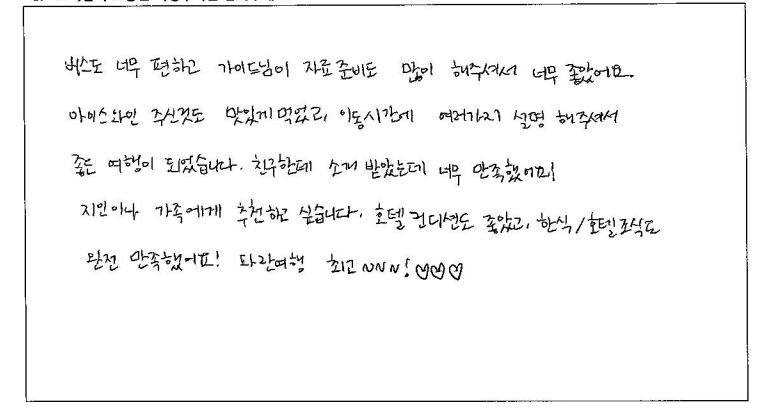 버스도 너무 편하고 가이드님이 자료준비도 많이 해주셔서 너무 좋았어요.
아이스와인 주신것도 맛있게 먹었고, 이동시간에 여러가지 설명 해주셔서
좋은 여행이 되었습니다. 친구한테 소개 받았는데 너무 만족했어요!
지인이나 가족에게 추천하고 싶습니다. 호텔 컨디션도 좋았고, 한식/호텔조식도
완전 만족했어요! 파란여행 최고~~~! ♡♡♡